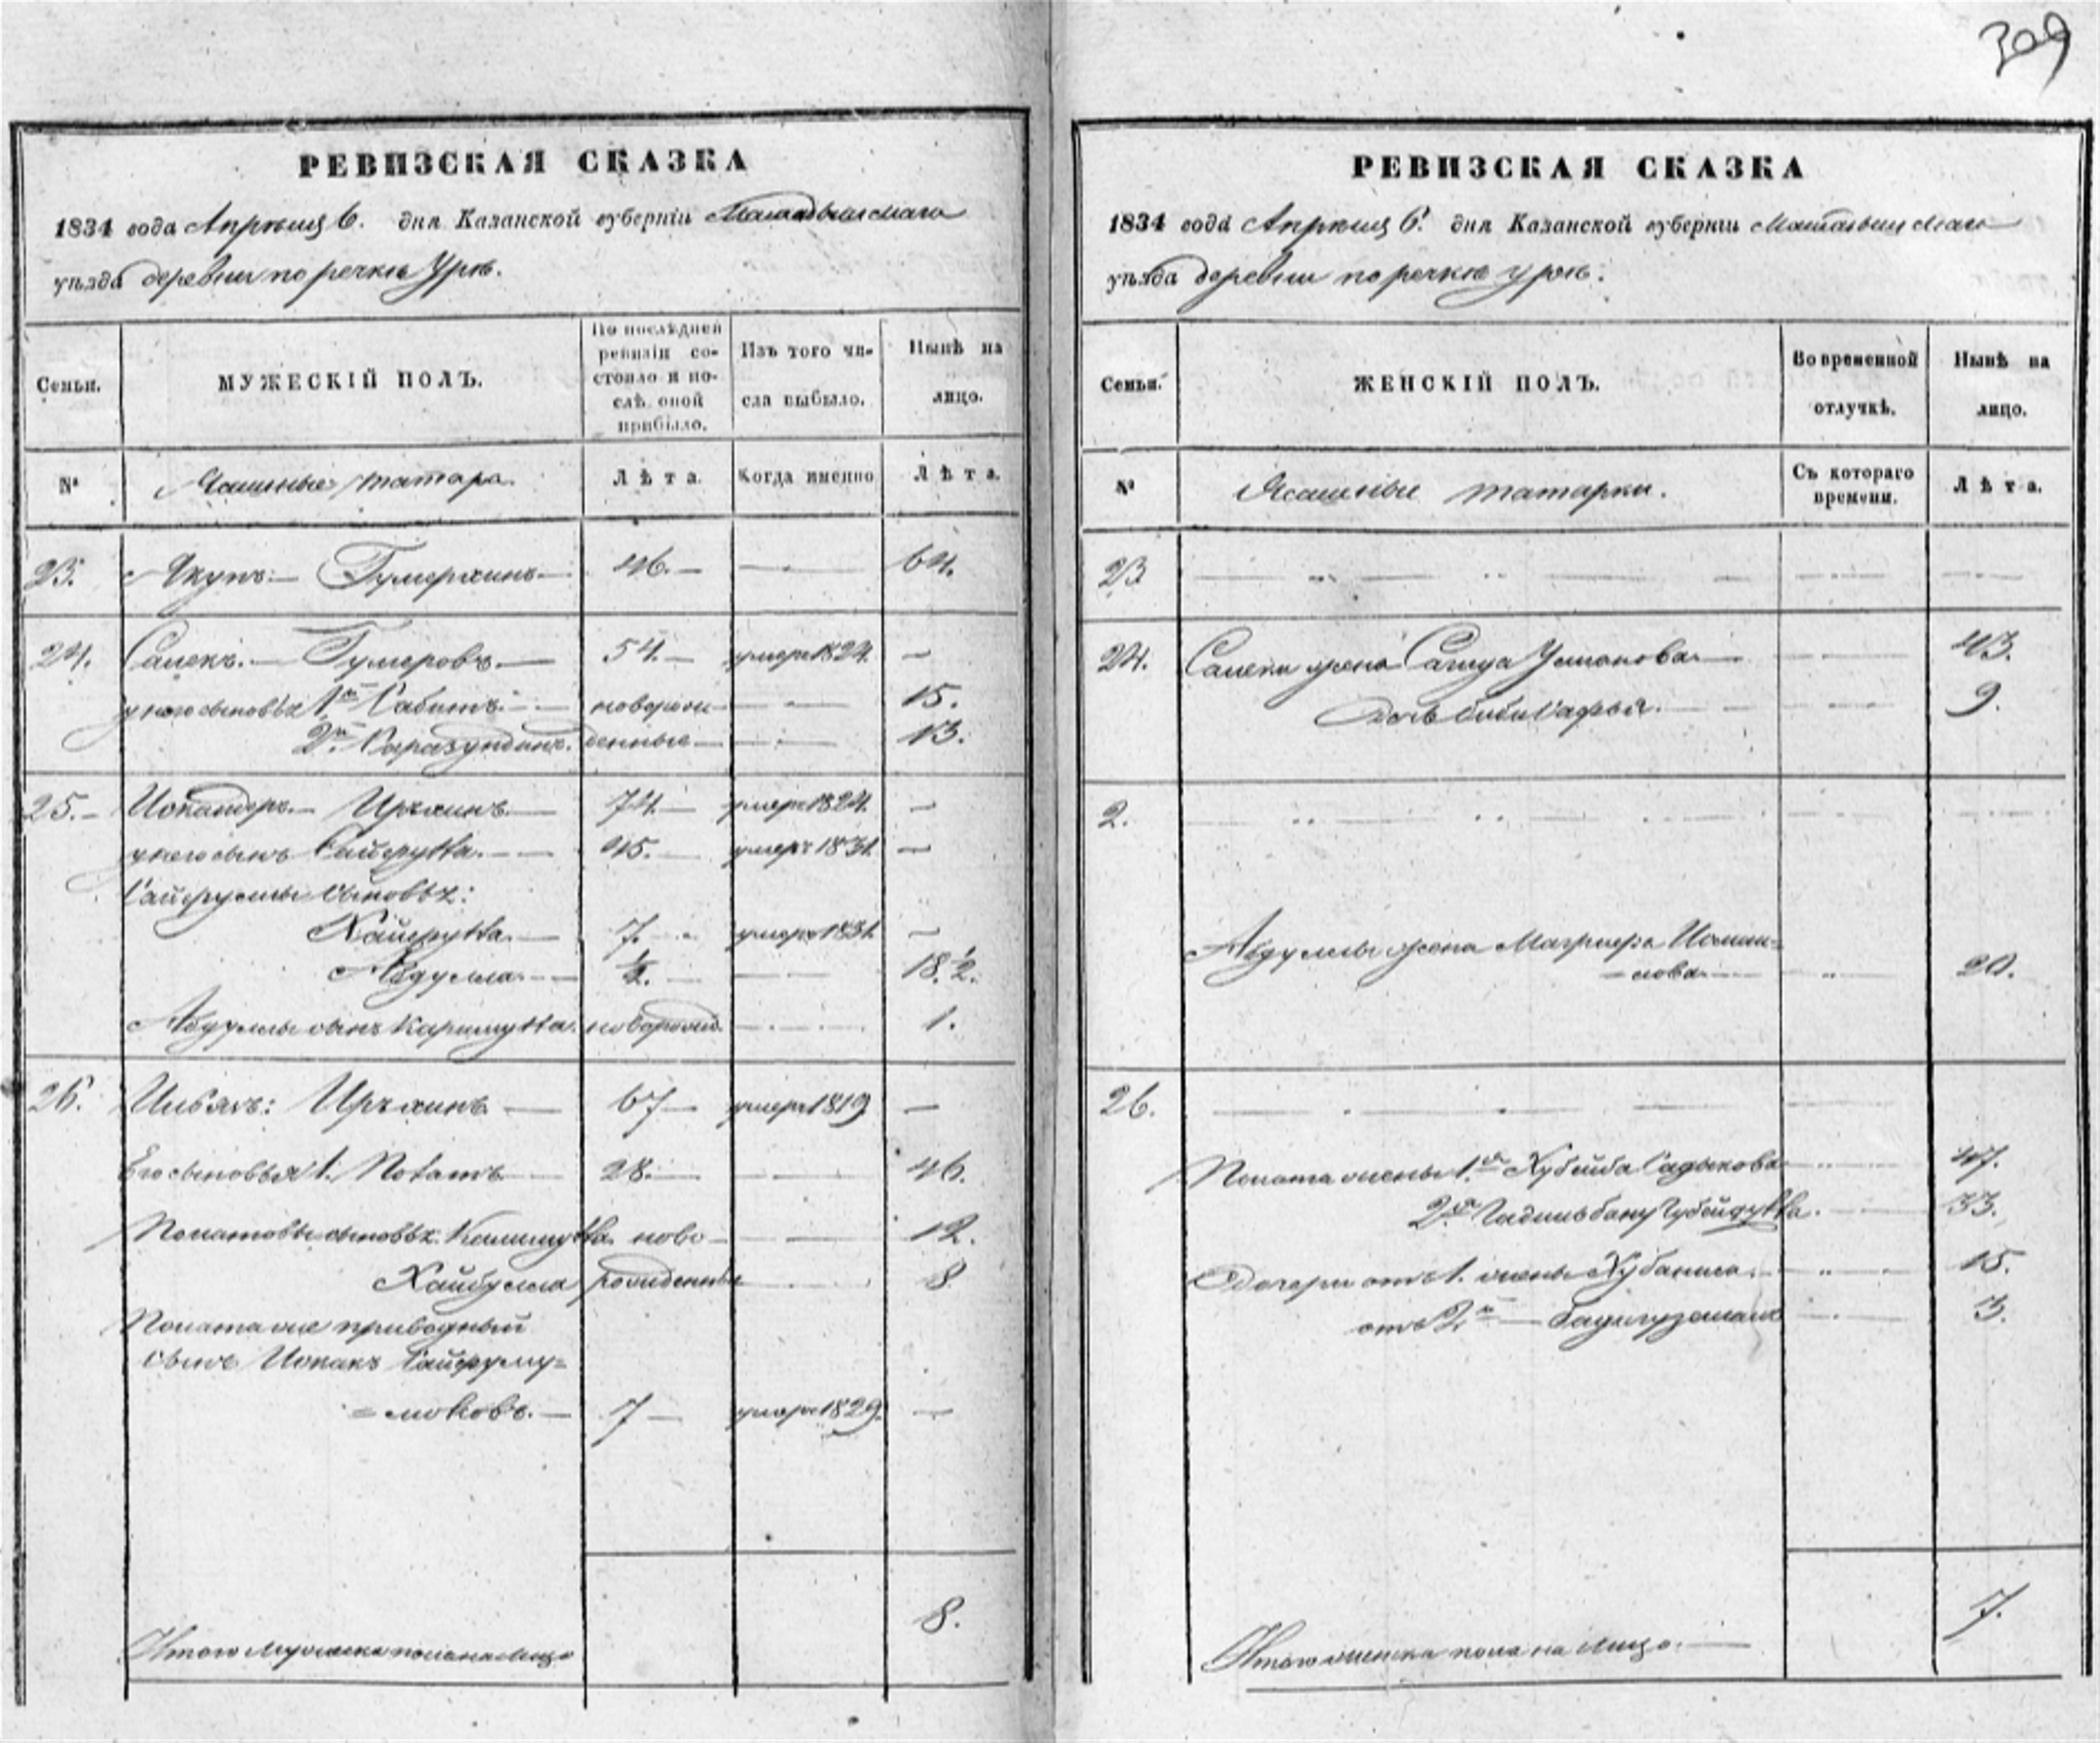 309
РЕВИЗСКАЯ СКАЗКА
1834 года Апрѣля 6. дня Казанской губерніи Мамадышскаго
уѣзда деревни по речкѣ Урѣ.
Семьи.
МУЖЕСКІЙ ПОЛЪ.
По послѣдней ревизіи состояло и послѣ оной прибыло.
Изъ того числа выбыло.
Нынѣ на лицо.
№
Ясашные татара.
Лѣта.
Когда именно
Лѣта.
23. Якупъ Гумеровъ 46. 64.
24. Салекъ. Гумеровъ. 54. умеръ 1824.
у него сыновья 1й Сабитъ. новорож- 15.
2й денные 13.
25. 74. умеръ 1824.
у него сынъ Сайфулла. 45. умеръ 1831.
Сайфуллы сыновья:
Хайрулла. 7. умеръ 1831.
Абдулла. ½. 18.½.
Абдуллы сынъ Каримулла. новорожд. 1.
26. Ильясъ: 67 умеръ 1819
Его сыновья 1. 28. 46.
сыновья. ново- 12.
Хайбулла рожденные 8
приводный
сынъ Сайфулму=
=ловъ. 7 умеръ 1829.
Итого мужеска пола на лицо 8.
РЕВИЗСКАЯ СКАЗКА
1834 года Апрѣля 6. дня Казанской губерніи Мамадышскаго
уѣзда деревни по речкѣ Урѣ.
Семьи.
ЖЕНСКІЙ ПОЛЪ.
Во временной отлучкѣ.
Нынѣ на лицо.
№
Ясашные татарки.
Съ котораго времени.
Лѣта.
23.
24. Салека жена Сагида Усманова 43.
дочь Бибисафья. 9.
2.
Абдуллы жена
=лова 20.
26.
жены 1.я Хубейба Садыкова 47.
2.я Губейдулла. 33.
дочери отъ 1. жены 15.
отъ 2й 3.
Итого женска пола на лицо. 7.